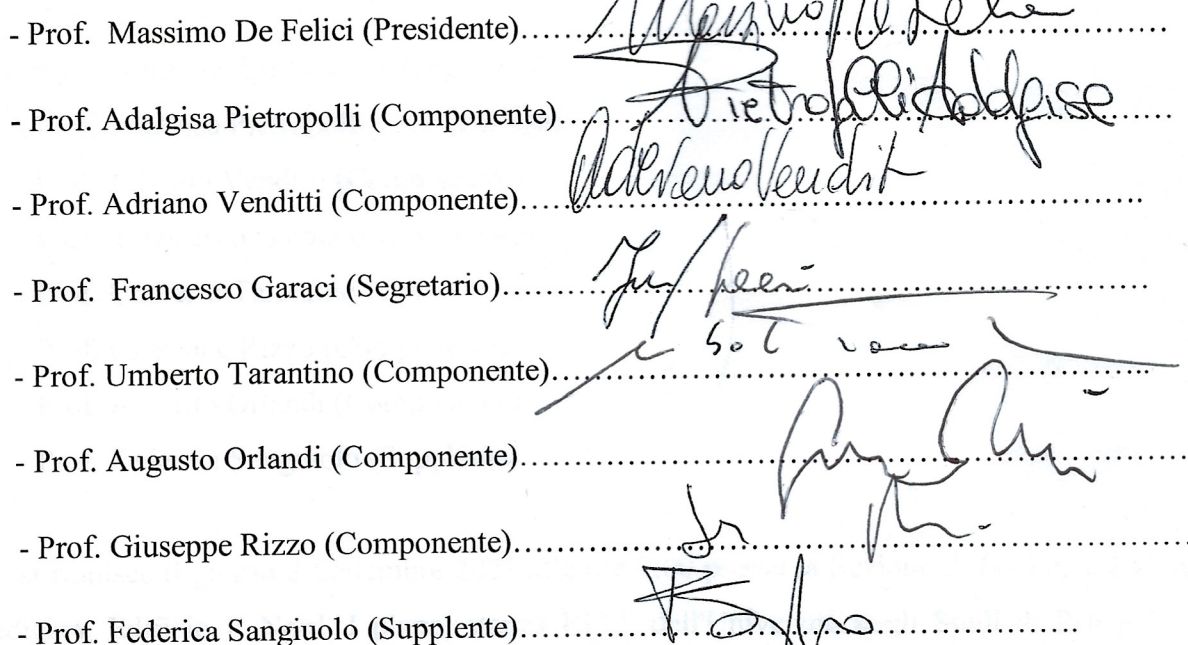 - Prof. Massimo De Felici (Presidente)..............
- Prof. Adalgisa Pietropolli (Componente).... Pietropolli Adalgisa
- Prof. Adriano Venditti (Componente)..... Adriano Venditti
- Prof. Francesco Garaci (Segretario)..............
- Prof. Umberto Tarantino (Componente)..............
- Prof. Augusto Orlandi (Componente)..............
- Prof. Giuseppe Rizzo (Componente)..............
- Prof. Federica Sangiuolo (Supplente)..............